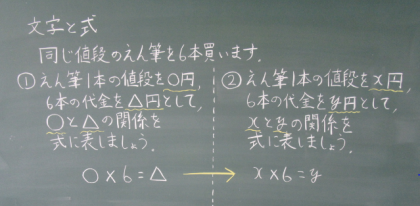 文字と式
同じ値段のえん筆を6本買います。
① えん筆1本の値段を○円,
6本の代金を△円として,
○と△の関係を
式に表しましょう。
○×6=△
② えん筆1本の値段をx円
6本の代金をy円として,
xとyの関係を
式に表しましょう。
x×6=y